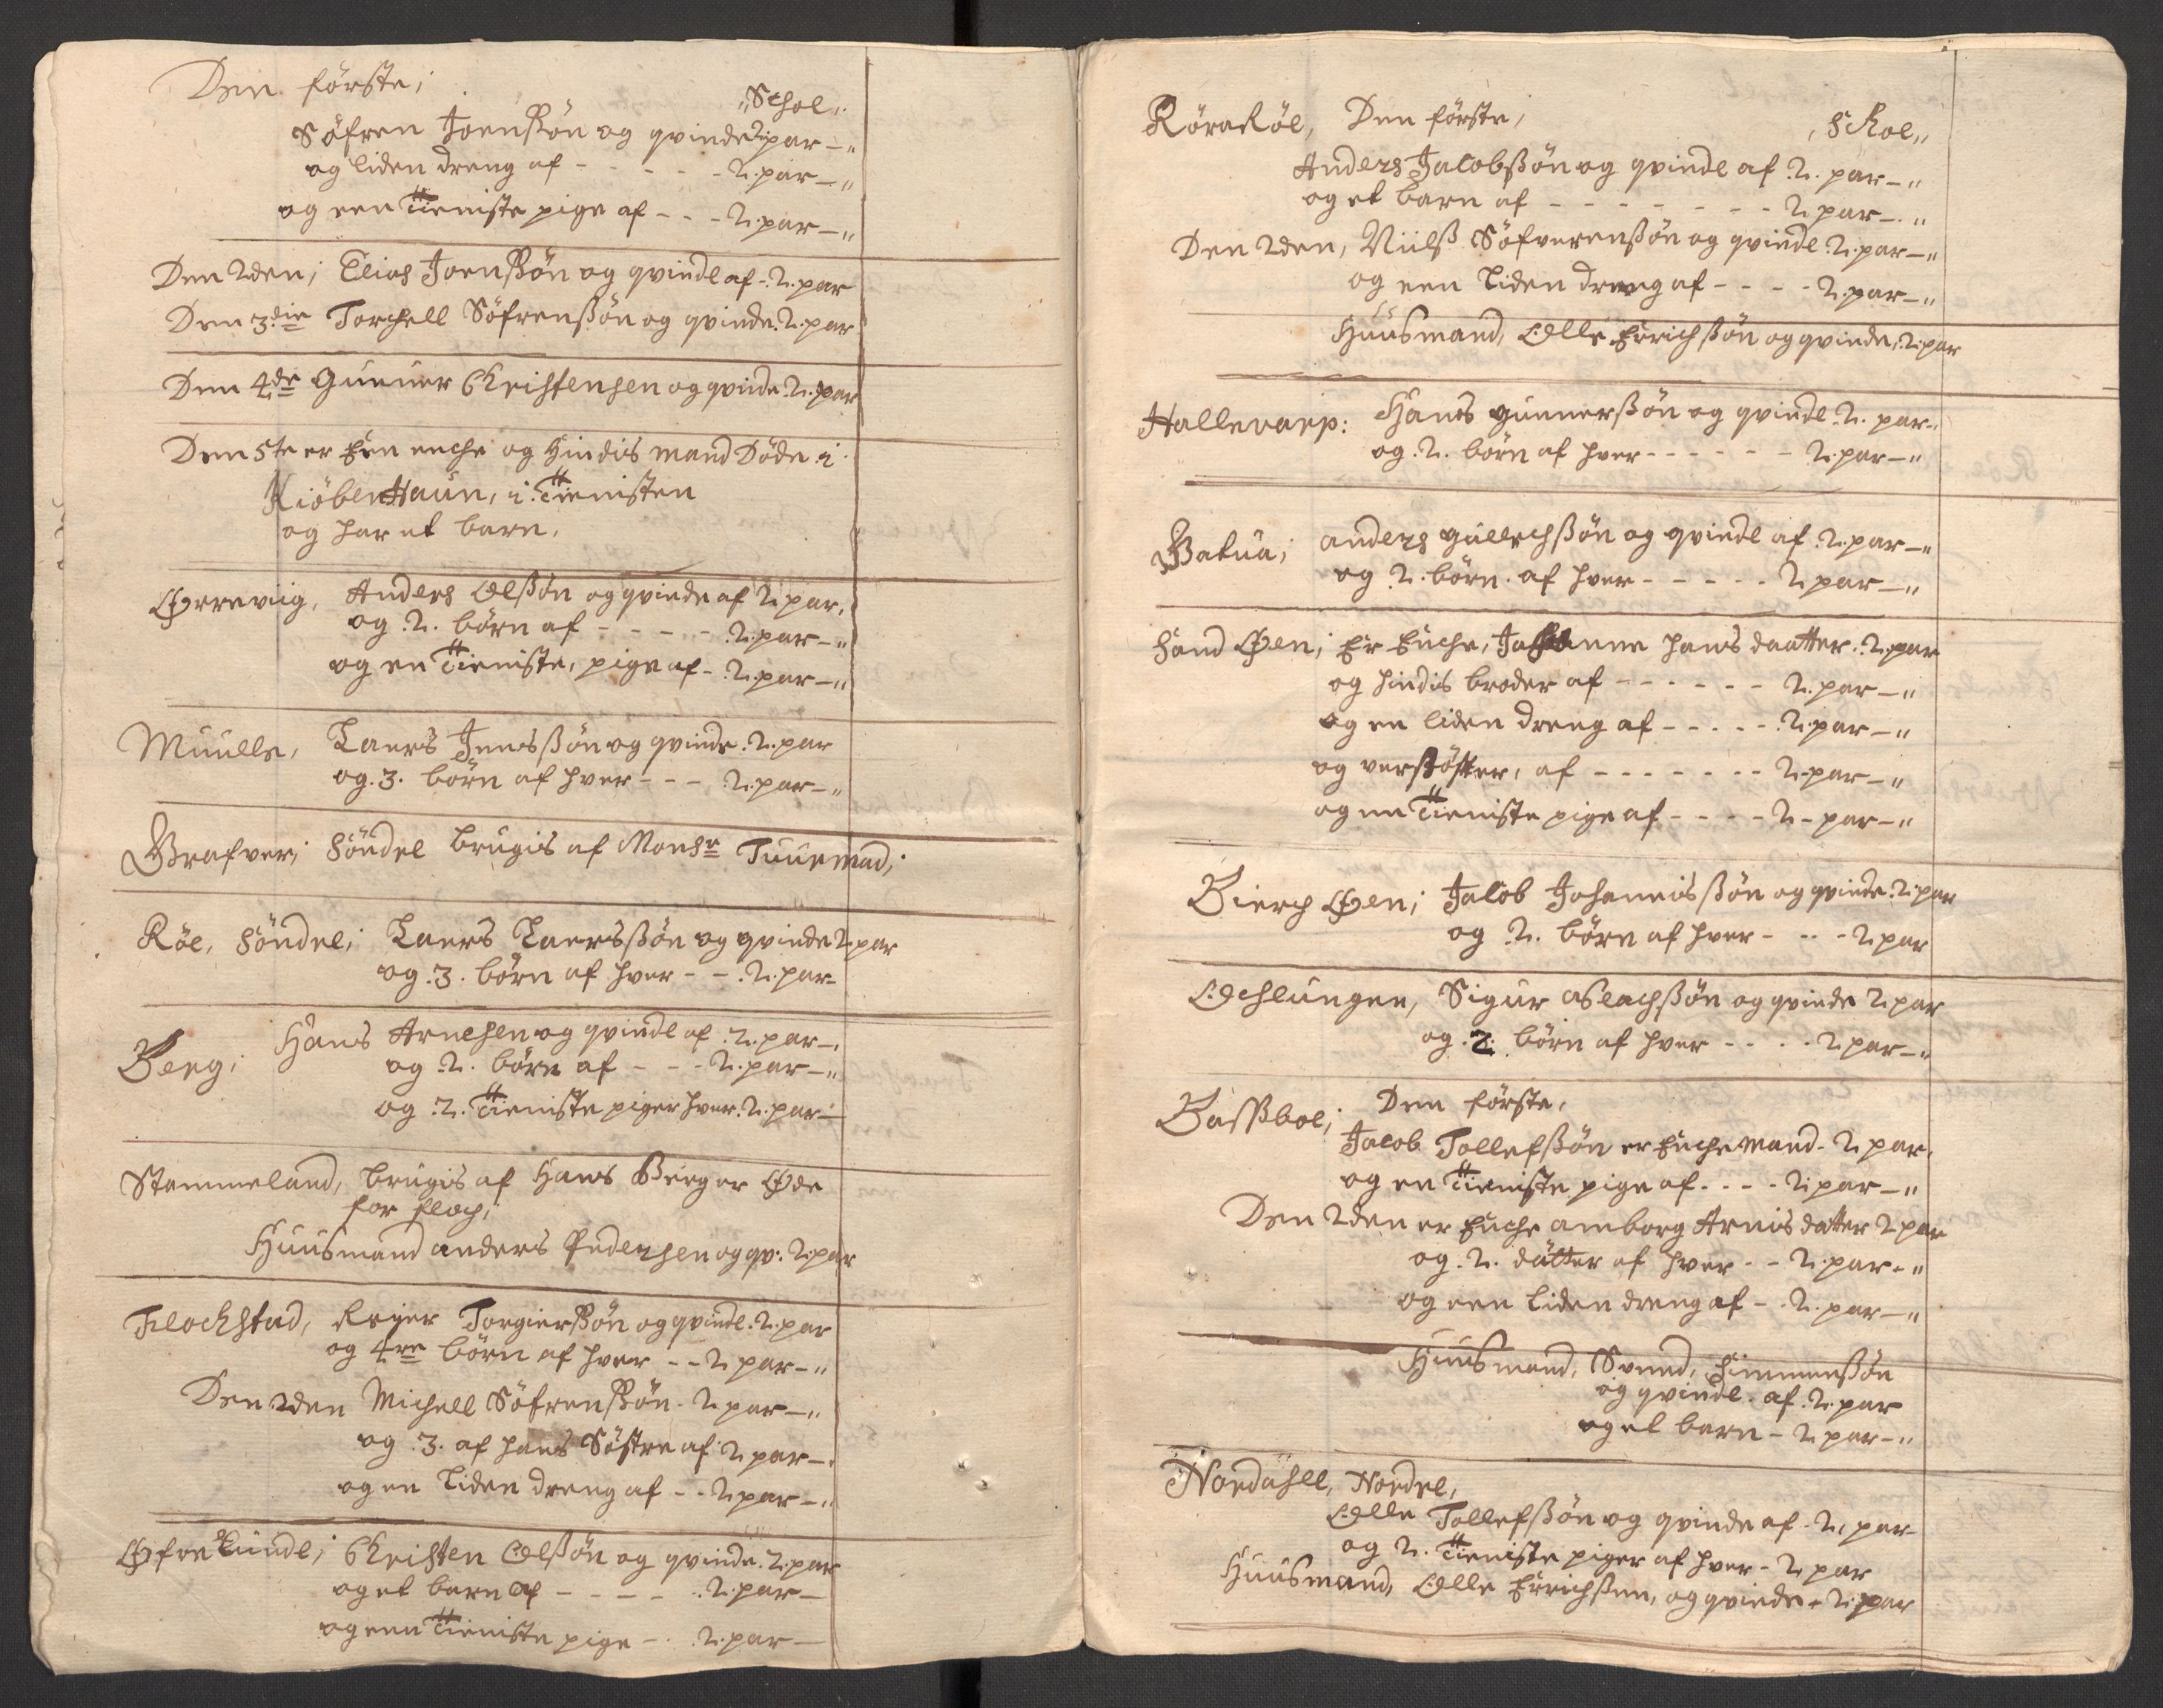 Den förste,
"Schol"
Söfren Joenßön og qvinde 2 par — "
og liden dreng af - - - - - 2. par — "
og een Tieniste pige af - - - 2. par — "
Den 2den; Elias Joenßön og qvinde af - 2. par
Den 3die Torchell Söfrenßön og qvinde. 2. par
Den 4de Gunner Christensen og qvinde. 2. par
Den 5te er Een enche og Hindis mand Döde i
KiöbenHaun, i Tienisten
og har et barn,
Örreviig, Anders Olßön og qvinde af 2 par,
og 2. börn af - - - - - 2. par — "
og en Tieniste, pige af - 2. par — "
Muulle, Laers Jensßön og qvinde. 2. par
og. 3. börn af hver - - - 2. par — "
Grafver; Söndre brugis af Monsr Tuuemad,
Röe, Söndre; Laers Laersßön og qvinde 2 par
og. 3. börn af hver - - . 2. par -
Berg; Hans Arnesen og qvinde af 2. par —
og 2. börn af - - - 2. par — "
og 2. Tieniste piger hver. 2. par —
Stammeland, brugis af Hans Berg er Öde
for
Huusmand anders Pedersen og qv: 2. par
Flochstad, Reyer Torgierßön og qvinde. 2. par
og 4re börn af hver - - 2 par — "
Den 2den Michell Söfrenßön - 2 par — "
og 3. af hans Söstre af 2 par —
og en Liden dreng af - - 2 par — "
Öfre Lunde; Christen Olßön og qvinde. 2. par
og et barn af - - - - .. 2. par —
og een Tieniste pige - . 2. par —
Röra Röe, Den förste,
, Skoe,,
Anders Jacobßön og qvinde af 2. par — "
og et barn af - - - - - - - 2. par — "
Den 2den, Niilß Söfverenßön og qvinde 2. par — "
og een Liden dreng af - - - - 2. par — "
Huusmand, Olle Erichßön og qvinde, 2. par
Hallevarp: Hans Gunnerßön og qvinde 2. par -
og. 2. börn af hver - - - - - - 2. par — "
anders gullichßön og qvinde af 2. par — "
og 2. börn af hver - - - - - 2 par — "
Sand Öen; Er Enche, Johanne hans daatter. 2. par
og hindis broder af - - - - - - 2. par — "
og en liden dreng af - - - - - 2. par — "
og verßöster, af - - - - - - - 2. par — "
og en Tieniste pige af - - - - 2 - par — "
Bierch Öen; Jacob Johannisßön og qvinde. 2. par
og 2. börn af hver - - - - 2 par
Ochlungen, Sigur Aslachßön og qvinde 2 par
og. 2. börn af hver - - - - 2 par — "
Bassboe; Den förste,
Jacob Tollefßön er Enche mand - 2 par,
og en Tieniste pige af - - - - 2 par — "
Den 2den er Enche amborg Arnisdatter 2 par
og. 2. dätter af hver - - 2 par - "
og een Liden dreng af - . 2. par — "
Huusmand, Svend, Simmenßön
og qvinde. af. 2. par
og et barn - 2 par — "
Nordahll, Nordre,
Olle Tollefßön og qvinde af - 2, par
og 2. Tieniste piger af hver - 2 par
Huusmand, Olle Erichßen, og qvinde - 2. par